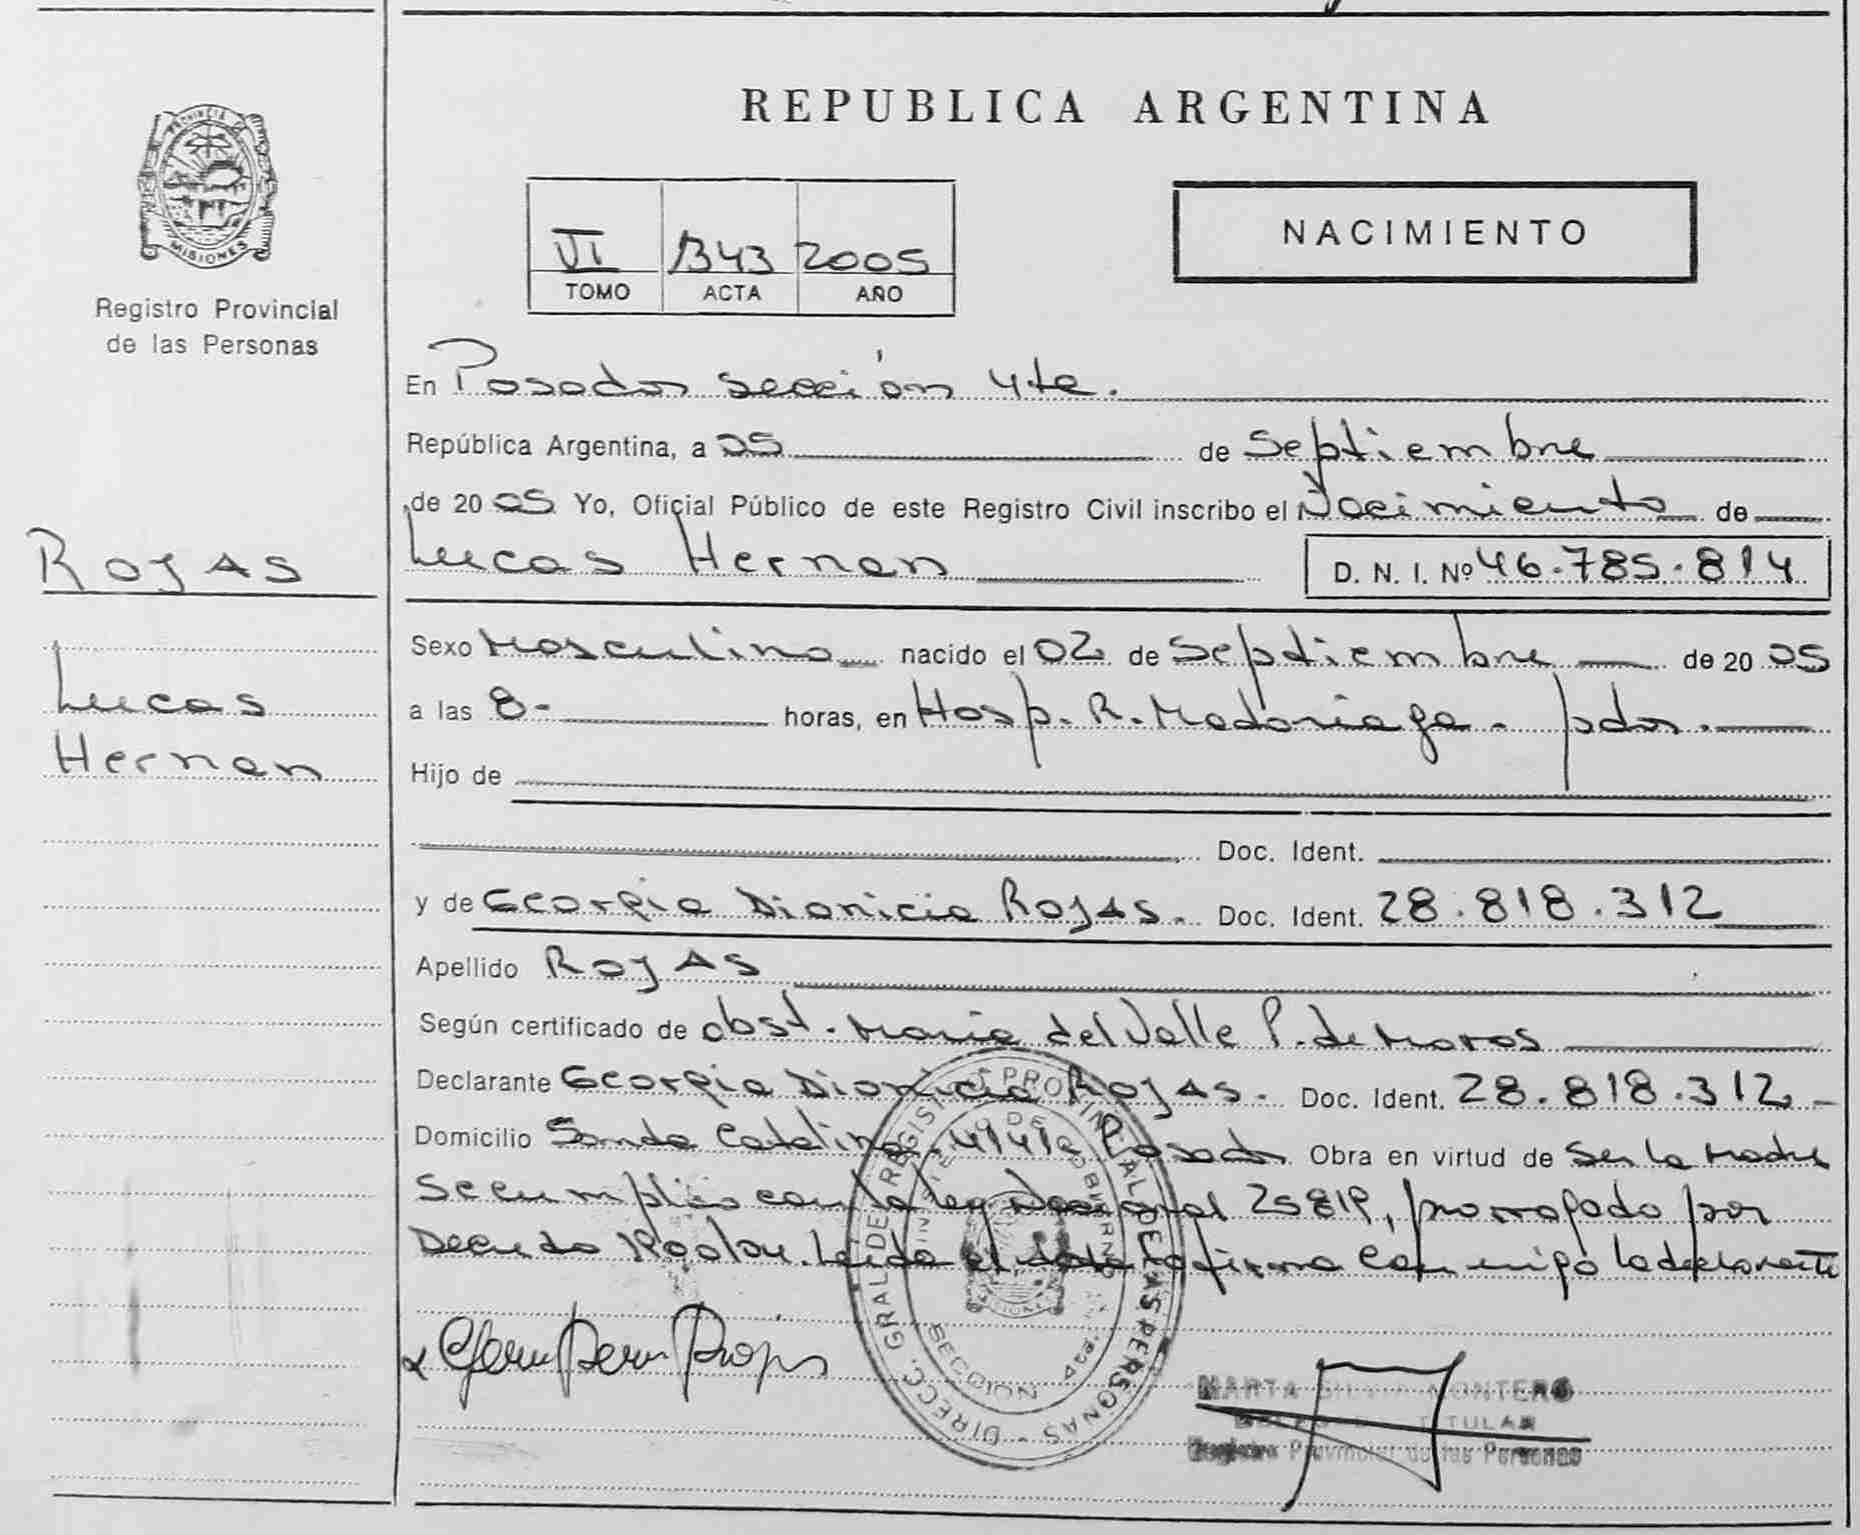 PROVINCIA DE
MISIONES
Registro Provincial
de las Personas
ROJAS
Lucas
Hernan
REPUBLICA ARGENTINA
VI 1343 2005
TOMO ACTA AÑO
NACIMIENTO
En Posadas sección 4ta.
República Argentina, a 05 de Septiembre
de 2005 Yo, Oficial Público de este Registro Civil inscribo el Nacimiento de
Lucas Hernan D. N. I. Nº 46.785.814
Sexo Masculino nacido el 02 de Septiembre de 2005
a las 8- horas, en Hosp. R. Madariaga - pdas.
Hijo de
Doc. Ident.
y de Georgia Dionicia Rojas. Doc. Ident. 28.818.312
Apellido ROJAS
Según certificado de obst. Maria del Valle P. de Moras
Declarante Georgia Dionicia Rojas. Doc. Ident. 28.818.312 -
Domicilio Santa Catalina, Posadas Obra en virtud de ser la madre
Se cumplió con la ley Nacional 25819, prorrogado por
Decreto Leida el acta la firma conmigo la declarante
DIRECC. GRAL DEL REGISTRO PROVINCIAL DE LAS PERSONAS
MINISTERIO DE GOBIERNO
SECCION 4ta.
MARTA SILVIA MONTERO
TITULAR
Registro Provincial de las Personas